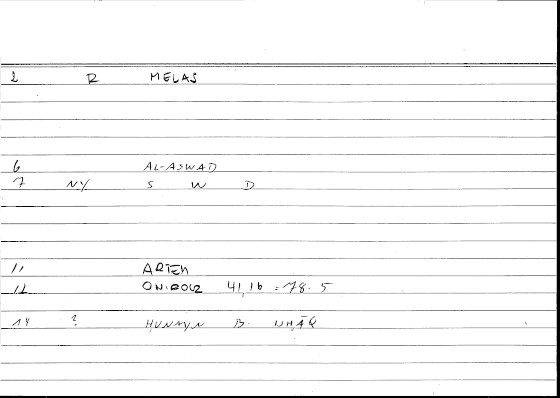 2 R MELAS
6 AL-ASWAD
7 NY S W D
11 ARTEM
12 ONIROCR 41,16 = 78.5
14 ? ḤUNAYN B. ISḤĀQ